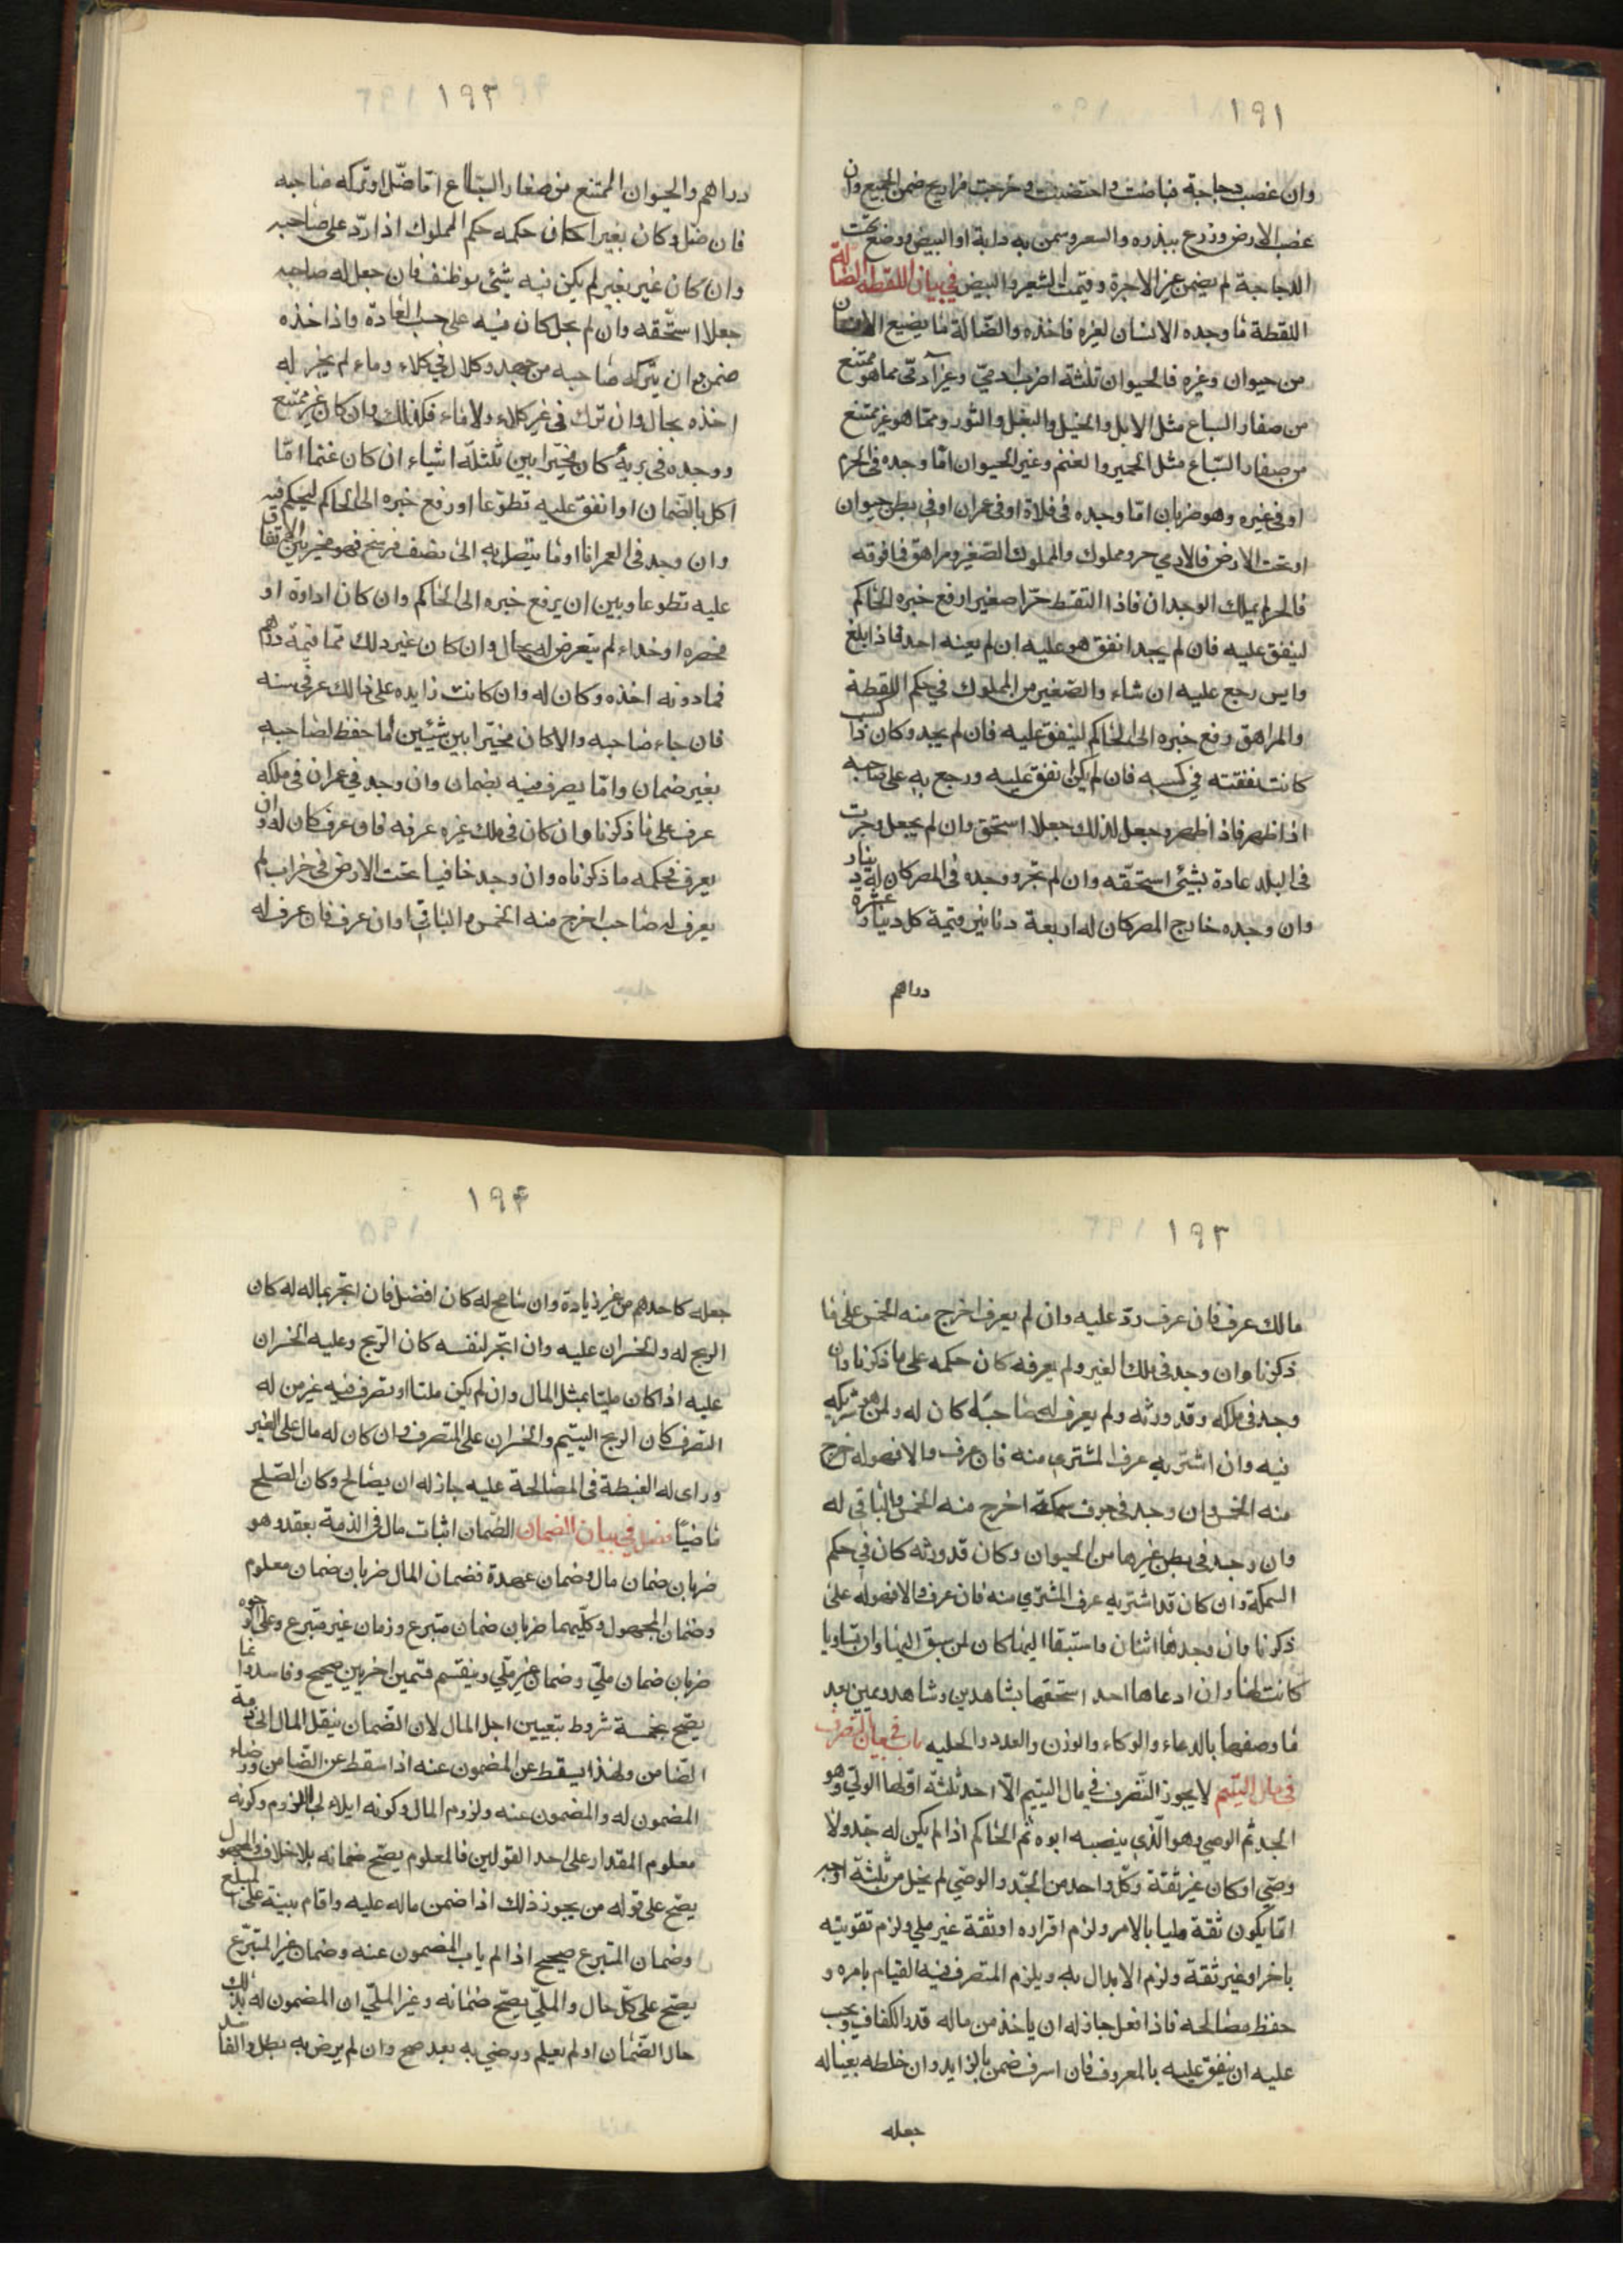 ١٩١
وان غصب دجاجة فباضت واحتضنت وخرجت فراريج ضمن الجميع وان
غصب الارض وزرع ببذره والسعر وسمن به دابة او البيض ووضع تحت
الدجاجة لم يضمن غير الاجرة وقيمت الشعير والبيض في بيان اللقطة والضالة
اللقطة ما وجده الانسان لغيره فاخذه والضالة ما يضيع الانسان
من حيوان وغيره فالحيوان ثلثة اضرب ادمي وغير آدمي مما هو ممتنع
من صغار السباع مثل الابل والخيل والبغل والثور ومما هو غير ممتنع
من صغار السباع مثل الحمير والغنم وغير الحيوان اما وجده في الحرم
او في غيره وهو ضربان اما وجده في فلاة او في عمران او في بطن حيوان
او تحت الارض فالادمي حر ومملوك والمملوك الصغير ومراهق فما فوقه
فالحر لم يملك الوجدان فاذا التقط حرا صغيرا رفع خبره الى الحاكم
لينفق عليه فان لم يجد انفق هو عليه ان لم يعنه احد فاذا بلغ
وايس رجع عليه ان شاء والصغير من المملوك في حكم اللقطة
والمراهق رفع خبره الى الحاكم لينفق عليه فان لم يجد وكان ذا كسب
كانت نفقته في كسبه فان لم يكن انفق عليه ورجع به على صاحبه
اذا ظهر فاذا ظهر وجعل لذلك جعلا استحق وان لم يجعل وجرت
في البلد عادة بشئ استحقه وان لم تجر ووجده في المصر كان له دينار
وان وجده خارج المصر كان له اربعة دنانير قيمة كل دينار عشرة
دراهم
١٩٢
دراهم والحيوان الممتنع من صغار السباع اما ضل او تركه صاحبه
فان ضل وكان بعيرا كان حكمه حكم المملوك اذا رد على صاحبه
وان كان غير بعير لم يكن فيه شئ موظف فان جعل له صاحبه
جعلا استحقه وان لم يجعل كان فيه على حسب العادة واذا اخذه
ضمن وان يتركه صاحبه من جهد وكلال في كلاء وماء لم يجز له
اخذه بحال وان ترك في غير كلاء ولا ماء فكذلك وان كان غير ممتنع
ووجده في برية كان مخيرا بين ثلثلة اشياء ان كان غنما اما
اكل بالضمان او انفق عليه تطوعا او رفع خبره الى الحاكم ليحكم فيه
وان وجد في العمران او ما يتصل به الى نصف فرسخ فهو مخير بين الانفاق
عليه تطوعا وبين ان يرفع خبره الى الحاكم وان كان اداوة او
مخصره او حذاء لم يتعرض له بحال وان كان غير ذلك مما قيمة درهم
فما دونه اخذه وكان له وان كانت زايده على ذلك عرف سنه
فان جاء صاحبه والا كان مخيرا بين شيئين اما حفظ لصاحبه
بغير ضمان واما يصرف فيه بضمان وان وجد في عمران في ملكه
عرف على ما ذكرنا وان كان في ملك غيره عرفه فان عرف كان له وان
يعرف فحكمه ما ذكرناه وان وجد خافيا تحت الارض في خراب لم
يعرف له صاحب اخرج منه الخمس والباقي اوان عرف فان عرف له
١٩٣
مالك عرف فان عرف رد عليه وان لم يعرف اخرج منه الخمس على ما
ذكرنا وان وجد في ملك الغير ولم يعرفه كان حكمه على ما ذكرنا وان
وجد في ملكه وقد ورثه ولم يعرف له صاحبا كان له ولمن هو شريكه
فيه وان اشتريه عرف المشتري منه فان عرف والا فهو له خرج
منه الخمس وان وجد في جوف سمكة اخرج منه الخمس والباقي له
وان وجد في بطن غيرها من الحيوان وكان قد ورثه كان في حكم
السمكة وان كان قد اشتريه عرف المشتري منه فان عرف والا فهو له على
ذكرنا وان وجدها اثنان واستبقا اليها كان لمن سبق اليها وان تساويا
كانت لهما وان ادعاها احد استحقها بشاهدين وشاهد ويمين بعد
ما وصفها بالدعاء والوكاء والوزن والعدد والحليه باب في بيان التصرف
في مال اليتيم لا يجوز التصرف في مال اليتيم الا احد ثلثة اولها الولي وهو
الجد ثم الوصي وهو الذي ينصبه ابوه ثم الحاكم اذا لم يكن له جد ولا
وصي او كان غير ثقة وكل واحد من الجد والوصي لم يخل من ثلثة اوجه
اما يكون ثقة مليا بالامر ولزم اقراره او ثقة غير ملي ولزم تقويته
باخر او غير ثقة ولزم الابدال به ويلزم المتصرف فيه القيام بامره و
حفظ مصالحه فاذا فعل جاز له ان ياخذ من ماله قدر الكفاف ويجب
عليه ان ينفق عليه بالمعروف فان اسرف ضمن بالزايد وان خلطه بعياله
جعله
١٩۴
جعله كاحدهم من غير زيادة وان سامح له كان افضل فان اتجر بماله له كان
الربح له والخسران عليه وان اتجر لنفسه كان الربح وعليه الخسران
عليه اذا كان مليا بمثل المال وان لم يكن مليا او تصرف فيه غير من له
التصرف كان الربح اليتيم والخسران على المتصرف وان كان له مال على الغير
وراى له الغبطة في المصالحة عليه جاز له ان يصالح وكان الصلح
ماضيا فصل في بيان الضمان الضمان اثبات مال في الذمة بعقد وهو
ضربان ضمان مال وضمان عهدة فضمان المال ضربان ضمان معلوم
وضمان المجهول وكليهما ضربان ضمان متبرع وزمان غير متبرع وعلى الوجوه
ضربان ضمان ملي وضمان غير ملي وينقسم قسمين اخريين صحيح وفاسد وانما
يصح بخمسة شروط بتعيين اجل المال لان الضمان ينقل المال الى ذمة
الضامن ولهذا يسقط عن المضمون عنه اذا سقط عن الضامن ورضاء
المضمون له والمضمون عنه ولزوم المال وكونه ايلاء لى اللزوم وكونه
معلوم المقدار على احد القولين فالمعلوم يصح ضمانه بلا خلاف والمجهول
يصح على قوله من يجوز ذلك اذا ضمن ماله عليه واقام بينة على المبلغ
وضمان المتبرع صحيح اذا لم ياب المضمون عنه وضمان غير المتبرع
يصح على كل حال والملي يصح ضمانه وغير الملي ان المضمون له بذلك
حال الضمان او لم يعلم ورضي به بعد صح وان لم يرض به بطل والفاسد